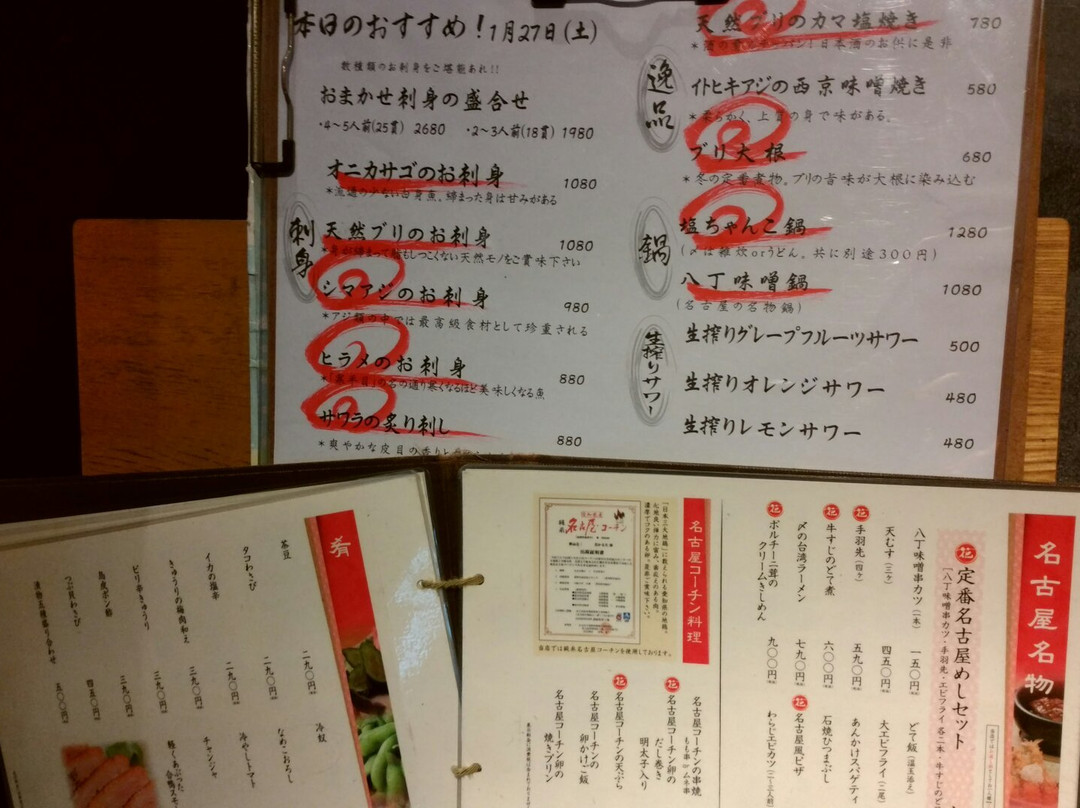 本日のおすすめ！1月27日(土)
数種類のお刺身をご堪能あれ!!
おまかせ刺身の盛合せ
・4〜5人前(25貫) 2680 ・2〜3人前(18貫) 1980
刺身
オニカサゴのお刺身 1080
*流通の少ない白身魚。締まった身は甘みがある
天然ブリのお刺身 1080
*身が締まって脂もしつこくない天然モノをご賞味下さい
シマアジのお刺身 980
*アジ類の中では最高級食材として珍重される
ヒラメのお刺身 880
*「寒平目」の名の通り寒くなるほど美味しくなる魚
サワラの炙り刺し 880
*爽やかな皮目の香りと
逸品
天然ブリのカマ塩焼き 780
日本酒のお供に是非
イトヒキアジの西京味噌焼き 580
*柔らかく、上質の身で味がある。
ブリ大根 680
*冬の定番煮物。ブリの旨味が大根に染み込む
鍋
塩ちゃんこ鍋 1280
(〆は雑炊orうどん。共に別途300円)
八丁味噌鍋 1080
(名古屋の名物鍋)
生搾りサワー
生搾りグレープフルーツサワー 500
生搾りオレンジサワー 480
生搾りレモンサワー 480
名古屋名物
定番名古屋めしセット
八丁味噌串カツ・手羽先・エビフライ各二本・牛すじのど
八丁味噌串カツ(一本) 一五〇円
天むす(三ケ) 四五〇円
手羽先(四ケ) 五九〇円
牛すじのどて煮 六〇〇円
〆の台湾ラーメン 七九〇円
ポルチーニ茸のクリームきしめん 九〇〇円
どて飯(温玉添え)
大エビフライ(二尾)
あんかけスパゲティ
石焼ひつまぶし
名古屋風ピザ
わらじエビカツ
名古屋コーチン料理
名古屋コーチン
当店では純系名古屋コーチンを使用しております。
名古屋コーチンの串焼
もも串・ムネ串
名古屋コーチン卵の
だし巻き
明太子入り
名古屋コーチンの天ぷら
名古屋コーチンの
卵かけご飯
名古屋コーチン卵の
焼きプリン
肴
茶豆 二九〇円
タコわさび 二九〇円
イカの塩辛 二九〇円
きゅうりの梅肉和え 三九〇円
ピリ辛きゅうり 三九〇円
鳥皮ポン酢 三九〇円
つぶ貝わさび 四五〇円
漬物五種盛り合わせ 五〇〇円
冷奴
なめこおろし
冷やしトマト
チャンジャ
軽くあぶった